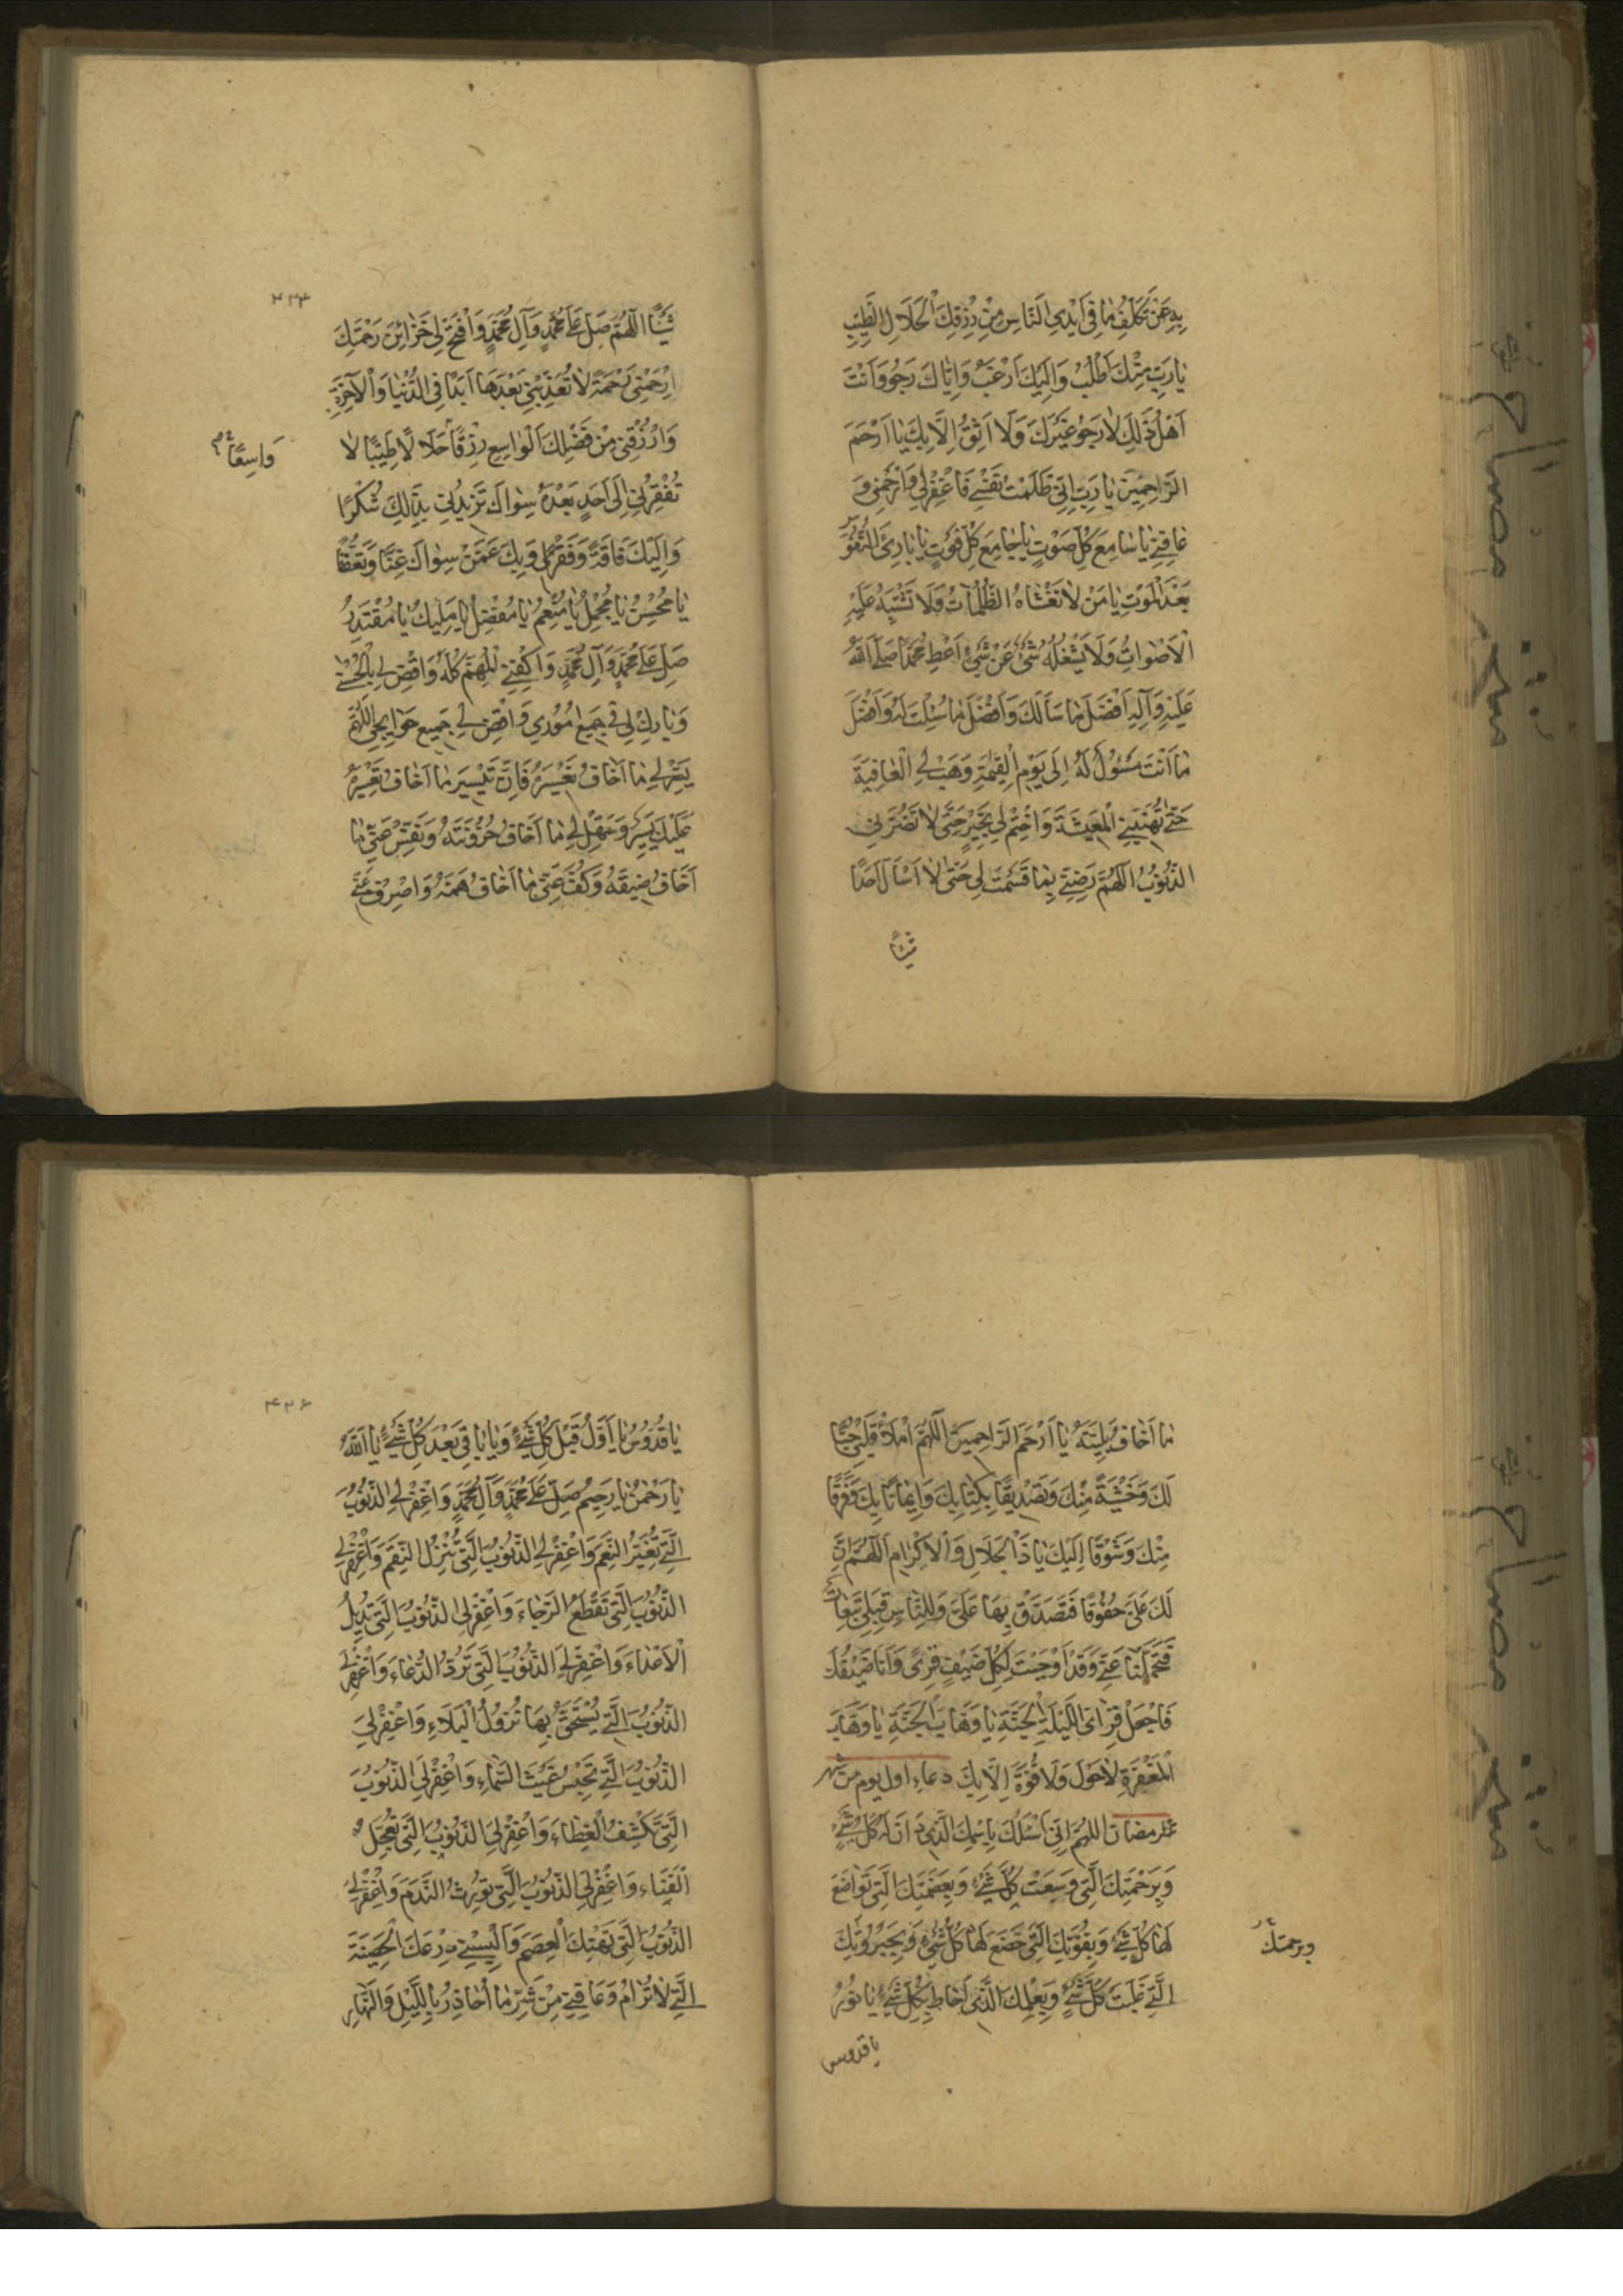 بِهِ عَنْ تَكَلُّفِ مَا فِى اَيْدِى النَّاسِ مِنْ رِزْقِكَ الْحَلَالِ الطَّيِّبِ
يَا رَبِّ مِنْكَ اَطْلُبُ وَاِلَيْكَ اَرْغَبُ وَاِيَّاكَ رَجُو وَاَنْتَ
اَهْلُ ذٰلِكَ لَا اَرْجُو غَيْرَكَ وَلَا اَثِقُ اِلَّا بِكَ يَا اَرْحَمَ
الرَّاحِمِيْنَ يَا رَبِّ اِنِّى ظَلَمْتُ نَفْسِى فَاغْفِرْلِى وَارْحَمْنِى وَ
عَافِنِى يَا سَامِعَ كُلِّ صَوْتٍ يَا جَامِعَ كُلِّ فَوْتٍ يَا بَارِئَ النُّفُوْسِ
بَعْدَ الْمَوْتِ يَا مَنْ لَا تَغْشَاهُ الظُّلُمَاتُ وَلَا تَشْتَبِهُ عَلَيْهِ
الْاَصْوَاتُ وَلَا يَشْغَلُهُ شَىْءٌ عَنْ شَىْءٍ اَعْطِ مُحَمَّدًا صَلَّى اللّٰهُ
عَلَيْهِ وَآلِهِ اَفْضَلَ مَا سَاَلَكَ وَاَفْضَلَ مَا سُئِلْتَ لَهُ وَاَفْضَلَ
مَا اَنْتَ مَسْئُوْلٌ لَهُ اِلٰى يَوْمِ الْقِيٰمَةِ وَهَبْ لِىَ الْعَافِيَةَ
حَتّٰى تُهَنِّيَنِى الْمَعِيْشَةَ وَاخْتِمْ لِى بِخَيْرٍ حَتّٰى لَا تَضُرَّنِى
الذُّنُوْبُ اَللّٰهُمَّ رَضِّنِى بِمَا قَسَمْتَ لِى حَتّٰى لَا اَسْاَلَ اَحَدًا
شَيْئًا
۴۲۴
شَيْئًا اَللّٰهُمَّ صَلِّ عَلٰى مُحَمَّدٍ وَآلِ مُحَمَّدٍ وَافْتَحْ لِى خَزَائِنَ رَحْمَتِكَ
ارْحَمْنِى رَحْمَةً لَا تُعَذِّبُنِى بَعْدَهَا اَبَدًا فِى الدُّنْيَا وَالْآخِرَةِ
وَارْزُقْنِى مِنْ فَضْلِكَ الْوَاسِعِ رِزْقًا حَلَالًا طَيِّبًا لَا
وَاسِعًا
تُفْقِرُنِى اِلٰى اَحَدٍ بَعْدَهُ سِوَاكَ تَزِيْدُنِى بِذٰلِكَ شُكْرًا
وَاِلَيْكَ فَاقَةً وَفَقْرًا وَبِكَ عَمَّنْ سِوَاكَ غِنًا وَتَعَفُّفًا
يَا مُحْسِنُ يَا مُجْمِلُ يَا مُنْعِمُ يَا مُفْضِلُ يَا مَلِيْكُ يَا مُقْتَدِرُ
صَلِّ عَلٰى مُحَمَّدٍ وَآلِ مُحَمَّدٍ وَاكْفِنِى الْمُهِمَّ كُلَّهُ وَاقْضِ لِى بِالْحُسْنٰى
وَبَارِكْ لِى فِى جَمِيْعِ اُمُوْرِى وَاقْضِ لِى جَمِيْعَ حَوَائِجِى اَللّٰهُمَّ
يَسِّرْ لِى مَا اَخَافُ تَعْسِيْرَهُ فَاِنَّ تَيْسِيْرَ مَا اَخَافُ تَعْسِيْرَهُ
عَلَيْكَ يَسِيْرٌ وَسَهِّلْ لِى مَا اَخَافُ حُزُوْنَتَهُ وَنَفِّسْ عَنِّى مَا
اَخَافُ ضِيْقَهُ وَكُفَّ عَنِّى مَا اَخَافُ هَمَّهُ وَاصْرِفْ عَنِّى
مَا اَخَافُ بَلِيَّتَهُ يَا اَرْحَمَ الرَّاحِمِيْنَ اَللّٰهُمَّ امْلَأْ قَلْبِى حُبًّا
لَكَ وَخَشْيَةً مِنْكَ وَتَصْدِيْقًا بِكِتَابِكَ وَاِيْمَانًا بِكَ وَفَرَقًا
مِنْكَ وَشَوْقًا اِلَيْكَ يَا ذَا الْجَلَالِ وَالْاِكْرَامِ اَللّٰهُمَّ اِنَّ
لَكَ عَلَىَّ حُقُوْقًا فَتَصَدَّقْ بِهَا عَلَىَّ وَلِلنَّاسِ قِبَلِى تَبِعَاتٌ
فَتَحَمَّلْهَا عَنِّى وَقَدْ اَوْجَبْتَ لِكُلِّ ضَيْفٍ قِرًى وَاَنَا ضَيْفُكَ
فَاجْعَلْ قِرَاىَ اللَّيْلَةَ الْجَنَّةَ يَا وَهَّابَ الْجَنَّةِ يَا وَهَّابَ
الْمَغْفِرَةِ لَا حَوْلَ وَلَا قُوَّةَ اِلَّا بِكَ دعاء اول يوم من شهر
رمضان اَللّٰهُمَّ اِنِّى اَسْئَلُكَ بِاسْمِكَ الَّذِى دَانَ لَهُ كُلُّ شَىْءٍ
وَبِرَحْمَتِكَ الَّتِى وَسِعَتْ كُلَّ شَىْءٍ وَبِعَظَمَتِكَ الَّتِى تَوَاضَعَ
لَهَا كُلُّ شَىْءٍ وَبِقُوَّتِكَ الَّتِى خَضَعَ لَهَا كُلُّ شَىْءٍ وَبِجَبَرُوْتِكَ
وبرحمتك
الَّتِى غَلَبَتْ كُلَّ شَىْءٍ وَبِعِلْمِكَ الَّذِى اَحَاطَ بِكُلِّ شَىْءٍ يَا نُوْرُ
يا قدوس
۴۲۶
يَا قُدُّوْسُ يَا اَوَّلُ قَبْلَ كُلِّ شَىْءٍ وَيَا بَاقِى بَعْدَ كُلِّ شَىْءٍ يَا اَللّٰهُ
يَا رَحْمٰنُ يَا رَحِيْمُ صَلِّ عَلٰى مُحَمَّدٍ وَآلِ مُحَمَّدٍ وَاغْفِرْ لِىَ الذُّنُوْبَ
الَّتِى تُغَيِّرُ النِّعَمَ وَاغْفِرْ لِىَ الذُّنُوْبَ الَّتِى تُنْزِلُ النِّقَمَ وَاغْفِرْ لِىَ
الذُّنُوْبَ الَّتِى تَقْطَعُ الرَّجَاءَ وَاغْفِرْ لِىَ الذُّنُوْبَ الَّتِى تُدِيْلُ
الْاَعْدَاءَ وَاغْفِرْ لِىَ الذُّنُوْبَ الَّتِى تَرُدُّ الدُّعَاءَ وَاغْفِرْ لِىَ
الذُّنُوْبَ الَّتِى يُسْتَحَقُّ بِهَا نُزُوْلُ الْبَلَاءِ وَاغْفِرْ لِىَ
الذُّنُوْبَ الَّتِى تَحْبِسُ غَيْثَ السَّمَاءِ وَاغْفِرْ لِىَ الذُّنُوْبَ
الَّتِى تَكْشِفُ الْغِطَاءَ وَاغْفِرْ لِىَ الذُّنُوْبَ الَّتِى تُعَجِّلُ
الْفَنَاءَ وَاغْفِرْ لِىَ الذُّنُوْبَ الَّتِى تُوْرِثُ النَّدَمَ وَاغْفِرْ لِىَ
الذُّنُوْبَ الَّتِى تَهْتِكُ الْعِصَمَ وَاَلْبِسْنِى دِرْعَكَ الْحَصِيْنَةَ
الَّتِى لَا تُرَامُ وَعَافِنِى مِنْ شَرِّ مَا اُحَاذِرُ بِاللَّيْلِ وَالنَّهَارِ